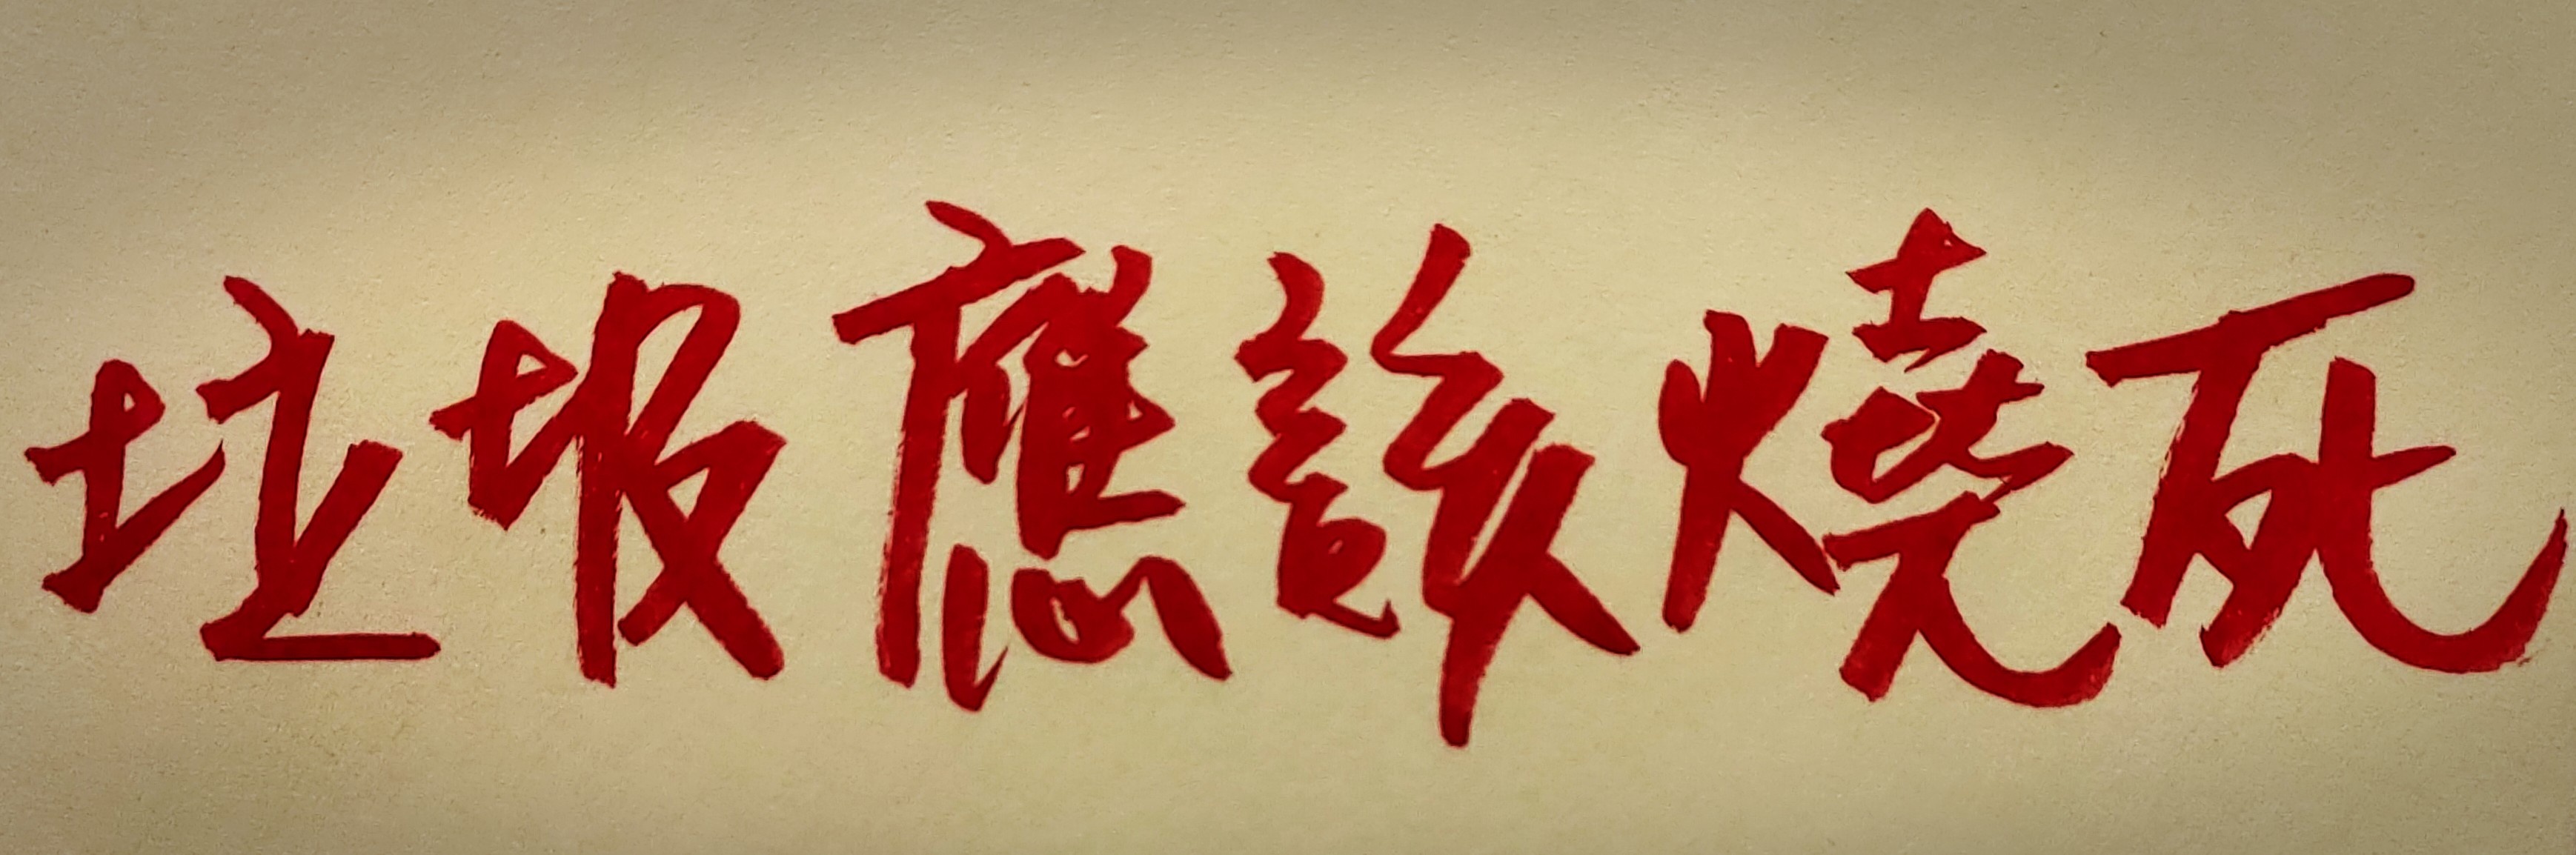 垃圾應該燒死